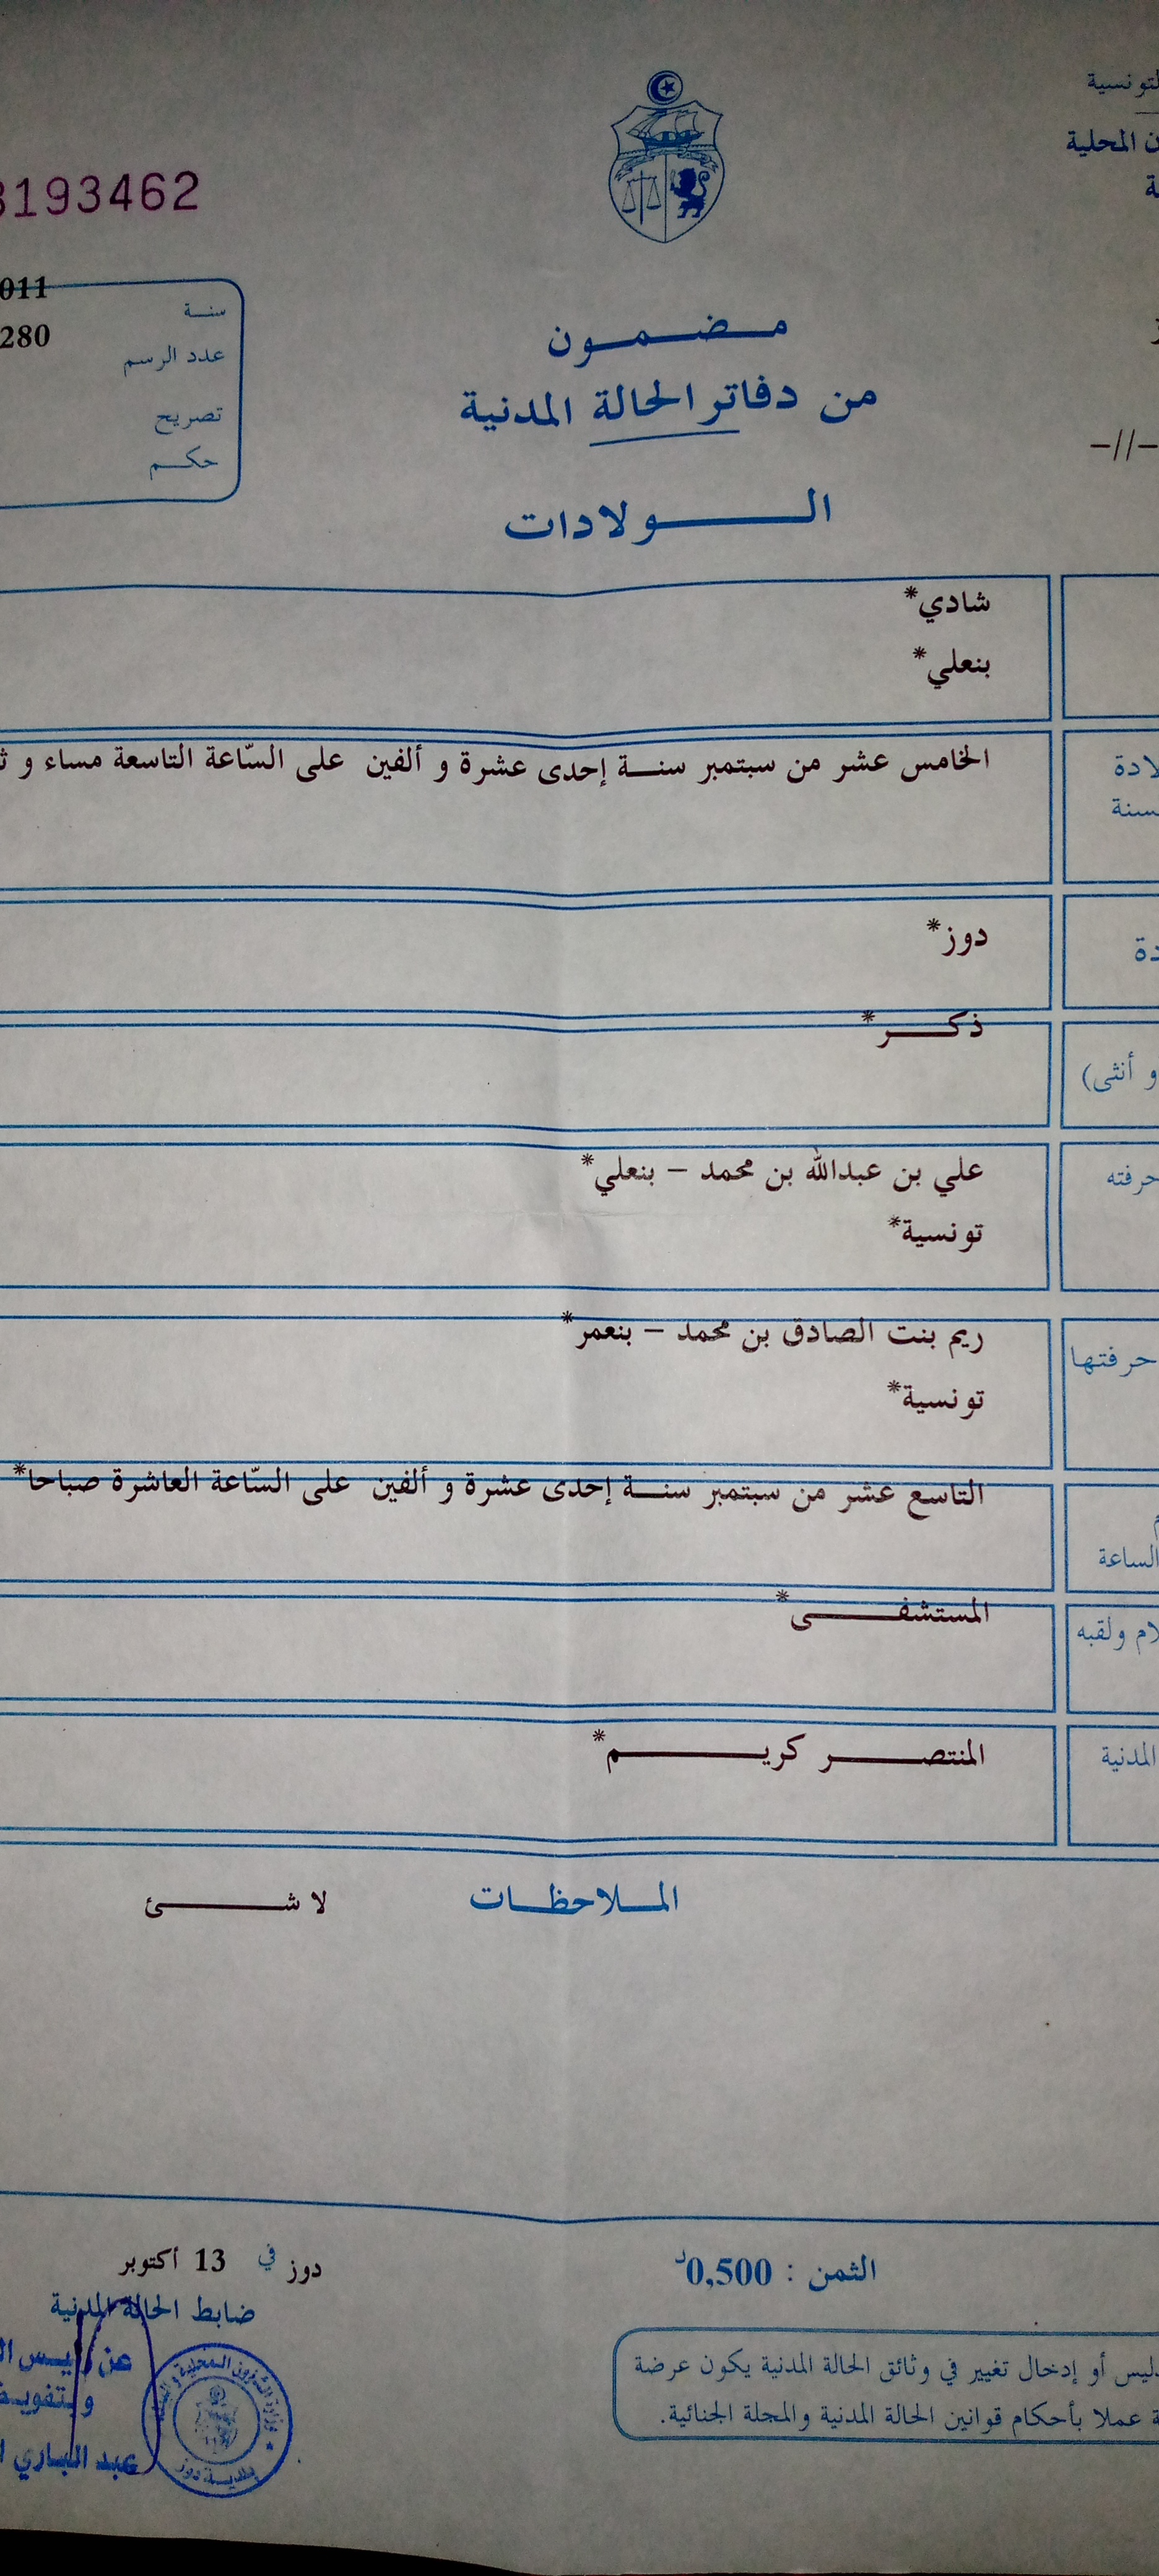 التونسية
المحلية
3193462
011
سنة
280
عدد الرسم
تصريح
حكم
مضمون
من دفاتر الحالة المدنية
-//-
الولادات
شادي*
بنعلي*
الخامس عشر من سبتمبر سنة إحدى عشرة و ألفين على السّاعة التاسعة مساء و
دوز*
ذكر*
و أنثى)
علي بن عبدالله بن محمد - بنعلي*
حرفته
تونسية*
ريم بنت الصادق بن محمد - بنعمر*
حرفتها
تونسية*
التاسع عشر من سبتمبر سنة إحدى عشرة و ألفين على السّاعة العاشرة صباحا*
الساعة
المستشفى*
ولقبه
المنتصر كريم*
المدنية
الملاحظات
لا شئ
الثمن : 0,500د
دوز في 13 أكتوبر
ضابط الحالة المدنية
أو إدخال تغيير في وثائق الحالة المدنية يكون عرضة
عملا بأحكام قوانين الحالة المدنية والمجلة الجنائية.
عن
عبد الباري
بلدية دوز